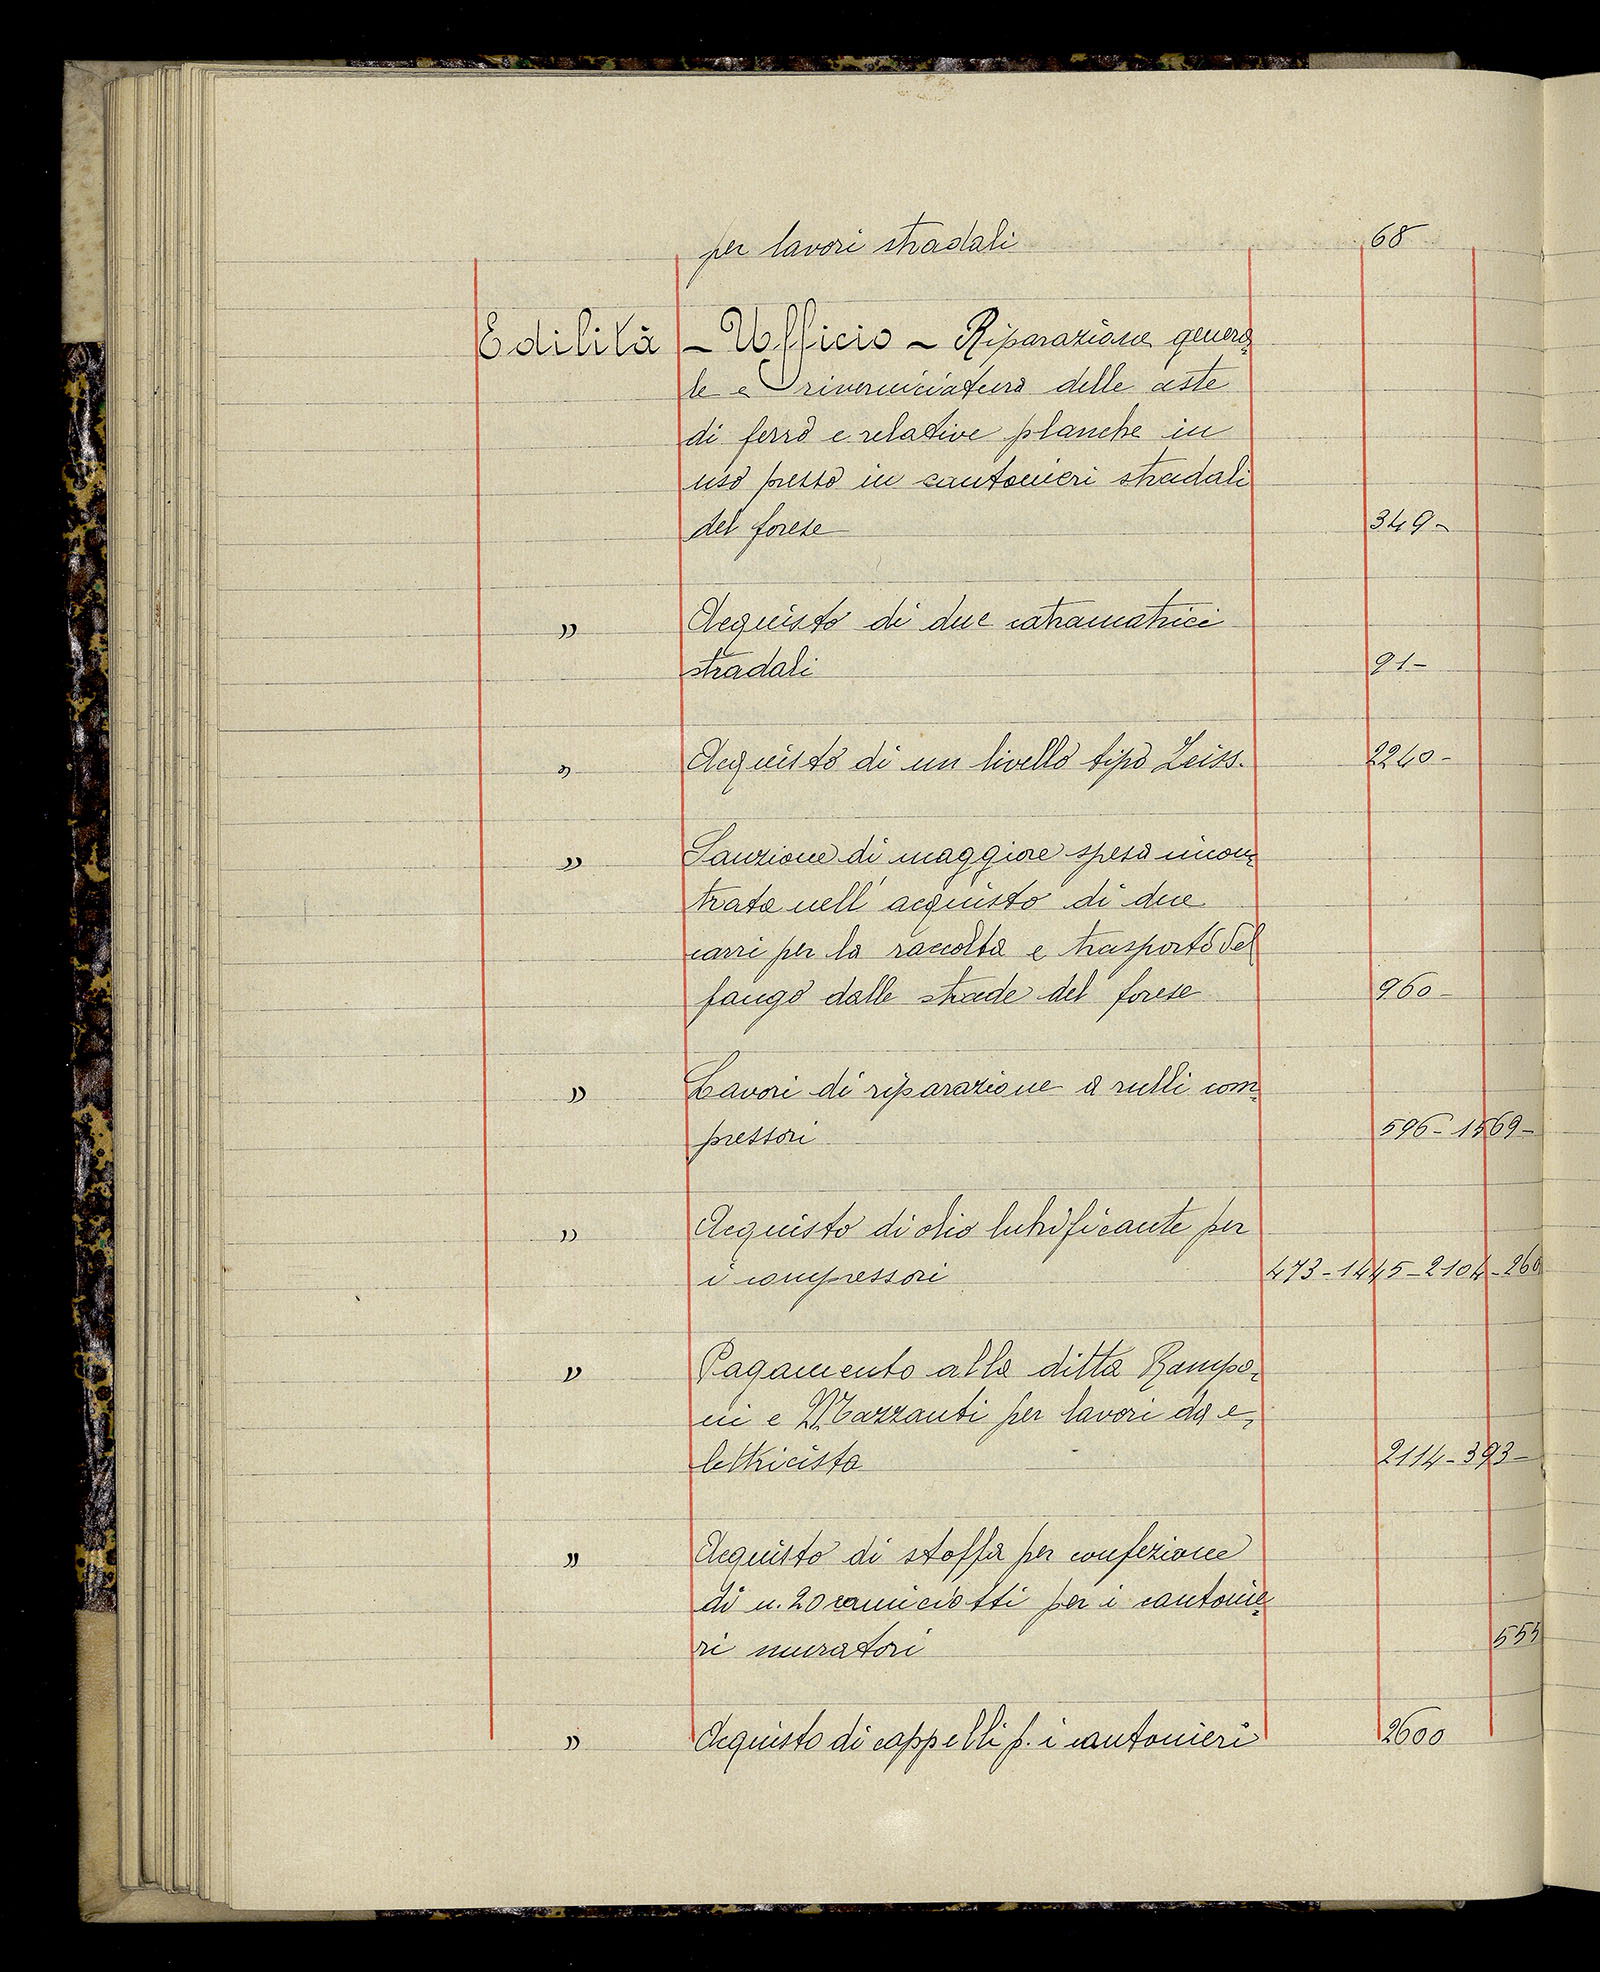 per lavori stradali 68
Edilità - Ufficio - Riparazione genera-
le e riverniciatura delle aste
di ferro e relative planche in
uso presso in cantonieri stradali
del forese 349-
" Acquisto di due catramatrici
stradali 91-
" Acquisto di un livello tipo Zeiss. 2240-
" Sanzione di maggiore spesa incon-
trata nell'acquisto di due
carri per la raccolta e trasporto del
fango dalle strade del forese 960-
" Lavori di riparazione a rulli com-
pressori 596-1569-
" Acquisto di olio lubrificante per
i compressori 473-1445-2104-260
" Pagamento alla ditta Rampo-
ni e Mazzanti per lavori da e-
lettricista 2114-393-
" Acquisto di stoffa per confezione
di n. 20 camiciotti per i cantonie-
ri muratori 555
" Acquisto di cappelli p. i cantonieri 2600